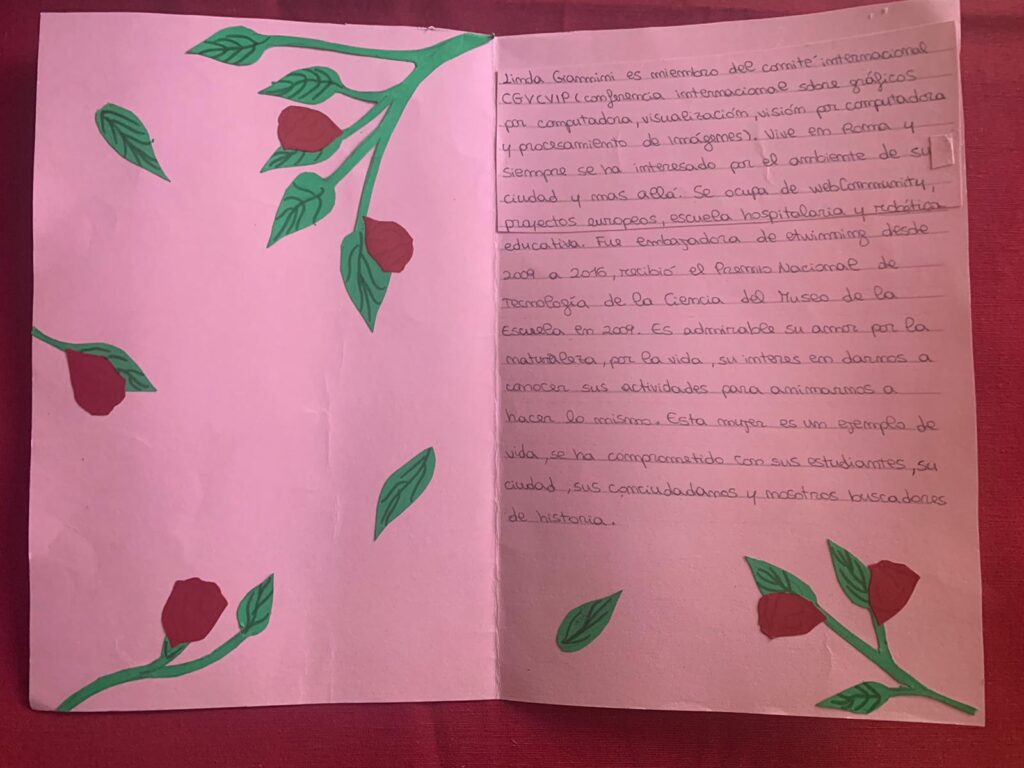 Linda Giannini es miembro del comité internacional
CGVCVIP (conferencia internacional sobre gráficos
por computadora, visualización, visión por computadora
y procesamiento de imágenes). Vive en Roma y
siempre se ha interesado por el ambiente de su
ciudad y mas allá. Se ocupa de webCommunity,
proyectos europeos, escuela hospitalaria y robótica
educativa. Fue embazadora de etwinning desde
2009 a 2016, recibió el Premio Nacional de
Tecnología de la Ciencia del Museo de la
Escuela en 2009. Es admirable su amor por la
naturaleza, por la vida, su interes en darnos a
conocer sus actividades para animarnos a
hacer lo mismo. Esta mujer es un ejemplo de
vida, se ha comprometido con sus estudiantes, su
ciudad, sus conciudadanos y nosotros buscadores
de historia.